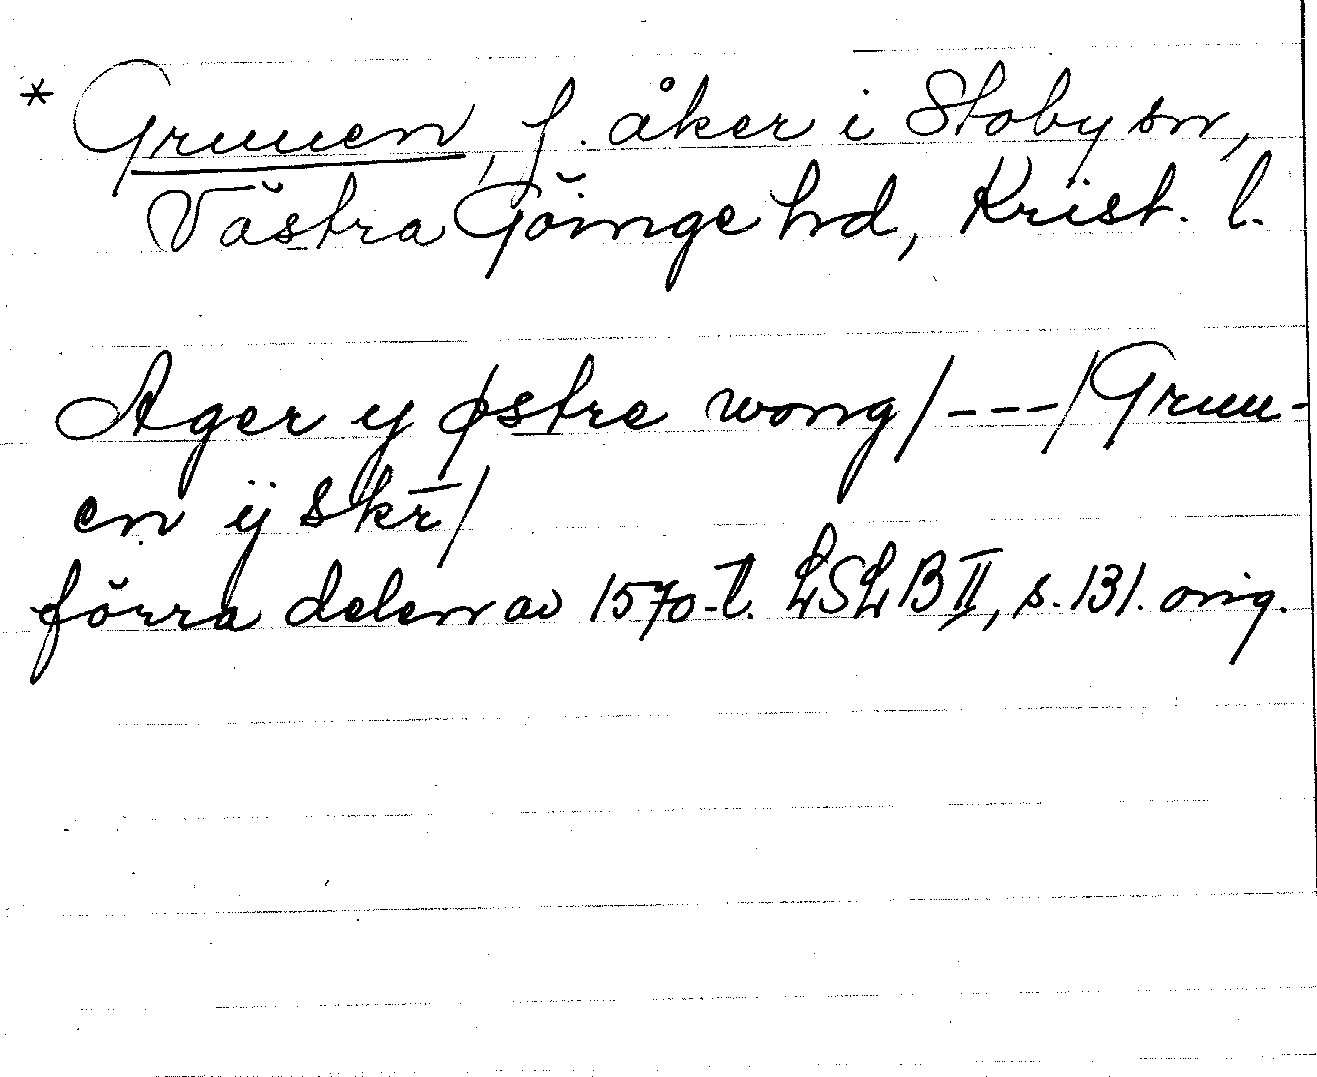 * Gruuen, f. åker i Stoby sn,
Västra Göinge hd, Krist. l.
Ager y østre wong/---/Gruu-
en ÿ skr̄/
förra delen av 1570-t. LSLB II, s. 131. orig.